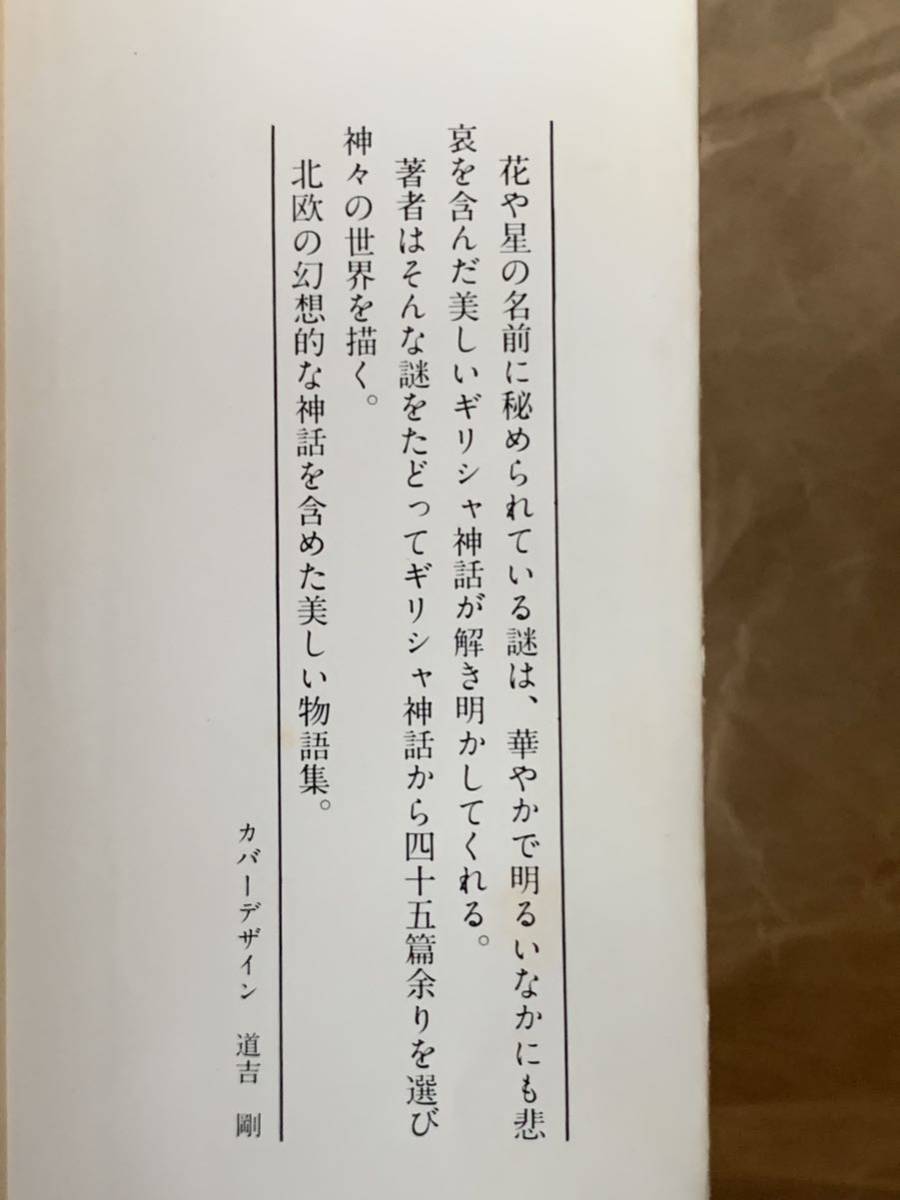 花や星の名前に秘められている謎は、華やかで明るいなかにも悲
哀を含んだ美しいギリシャ神話が解き明かしてくれる。
著者はそんな謎をたどってギリシャ神話から四十五篇余りを選び
神々の世界を描く。
北欧の幻想的な神話を含めた美しい物語集。
カバーデザイン 道吉 剛